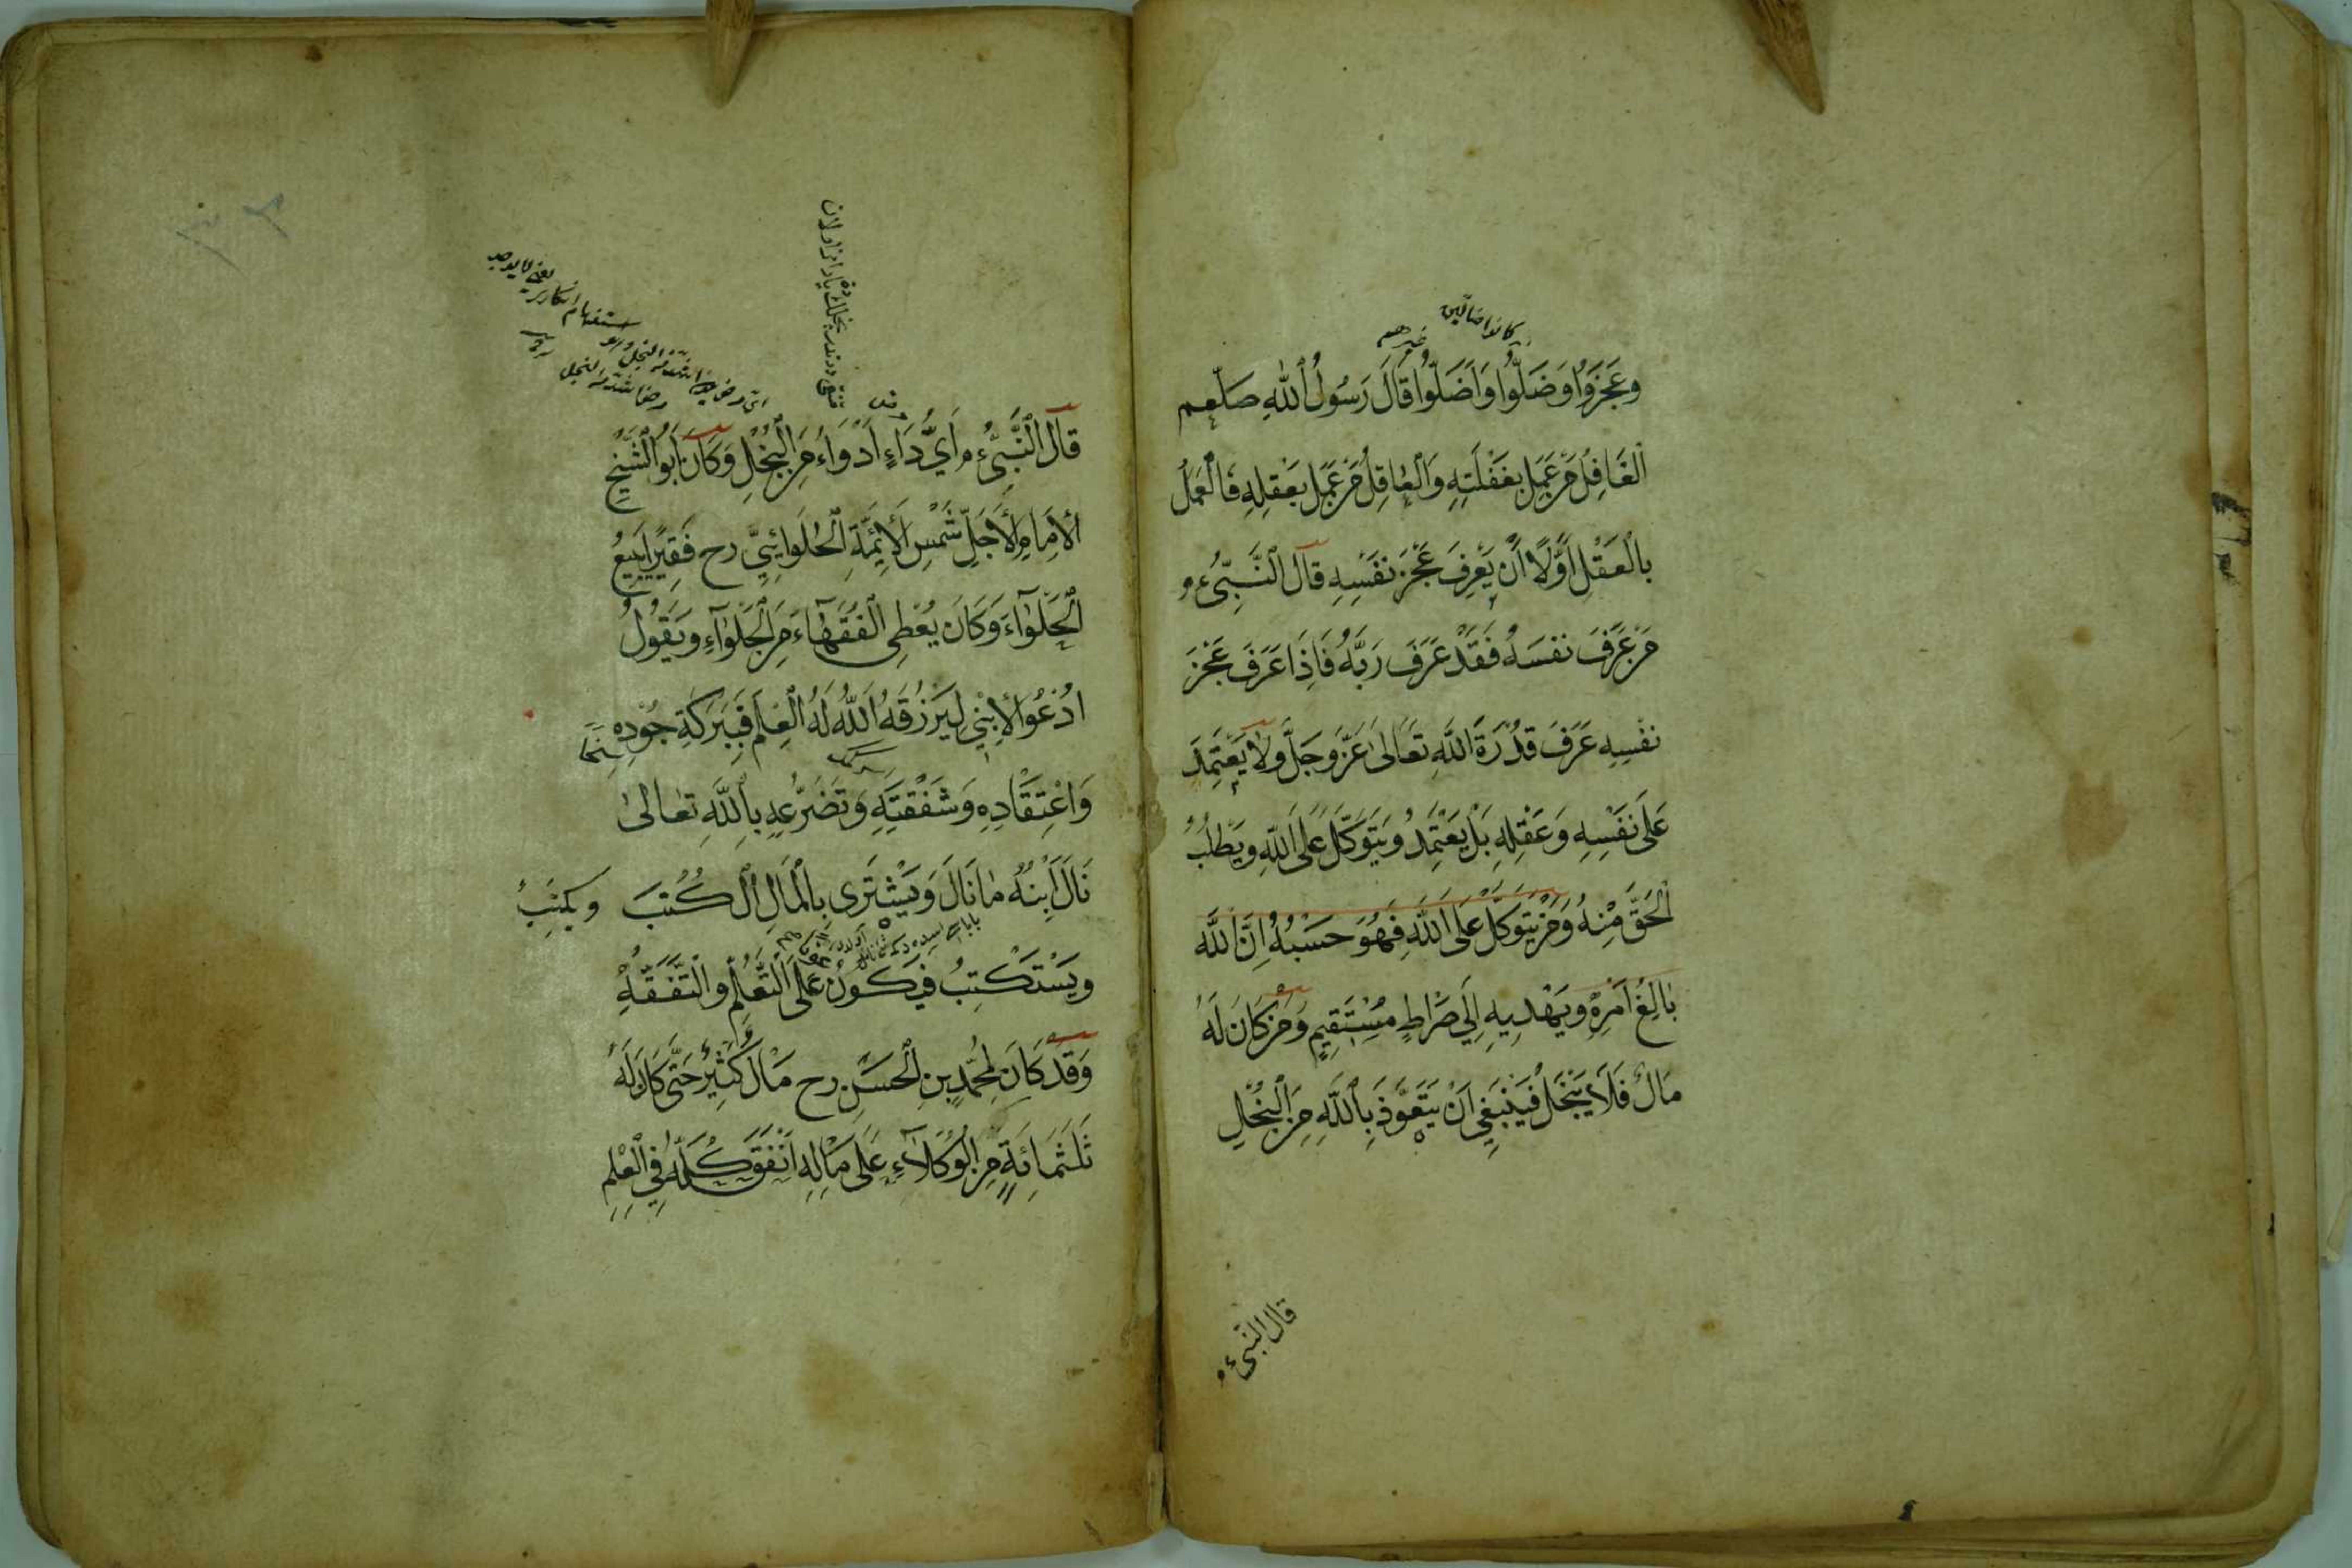 كانوا ضالين
غيرهم
وعَجَزُوا وَضَلُّوا وَاَضَلُّوا قَالَ رَسُولُ اللّٰهِ صلعم
اَلْغَافِلُ مَنْ عَمِلَ بِغَفْلَتِهِ وَالْعَاقِلُ مَنْ عَمِلَ بِعَقْلِهِ فَالْعَمَلُ
بِالْعَقْلِ اَوَّلًا اَنْ يَعْرِفَ عَجْزَ نَفْسِهِ قَالَ النَّبِيُّ ءم
مَنْ عَرَفَ نَفْسَهُ فَقَدْ عَرَفَ رَبَّهُ فَاِذَا عَرَفَ عَجْزَ
نَفْسِهِ عَرَفَ قُدْرَةَ اللّٰهِ تَعَالٰى عَزَّ وَجَلَّ وَلَا يَعْتَمِدُ
عَلَى نَفْسِهِ وَعَقْلِهِ بَلْ يَعْتَمِدُ وَيَتَوَكَّلُ عَلَى اللّٰهِ وَيَطْلُبُ
الْحَقَّ مِنْهُ وَمَنْ يَتَوَكَّلْ عَلَى اللّٰهِ فَهُوَ حَسْبُهُ اِنَّ اللّٰهَ
بَالِغُ اَمْرِهِ وَيَهْدِيهِ اِلَى صِرَاطٍ مُسْتَقِيمٍ وَمَنْ كَانَ لَهُ
مَالٌ فَلَا يَبْخَلُ فَيَنْبَغِي اَنْ يَتَعَوَّذَ بِاللّٰهِ مِنَ الْبُخْلِ
قال النبي ءم
قَالَ النَّبِيُّ ءم اَيُّ دَاءٍ اَدْوَاءُ مِنَ الْبُخْلِ وَكَانَ اَبُو الشَّيْخِ
الْاِمَامِ الْاَجَلِّ شَمْسِ الْاَئِمَّةِ الْحَلْوَائِيِّ رح فَقِيرًا يَبِيعُ
الْحَلْوَاءَ وَكَانَ يُعْطِى الْفُقَهَاءَ مِنَ الْحَلْوَاءِ وَيَقُولُ
اُدْعُوا لِاِبْنِي لِيَرْزُقَهُ اللّٰهُ لَهُ الْعِلْمَ فَبِبَرَكَةِ جُودِهِ
وَاعْتِقَادِهِ وَشَفْقَتِهِ وَتَضَرُّعِهِ بِاللّٰهِ تَعَالٰى
نَالَ اِبْنُهُ مَا نَالَ وَيَشْتَرِى بِالْمَالِ الْكُتُبَ وَيَكْتُبُ
وَيَسْتَكْتِبُ فَيَكُونُ عَلَى التَّعَلُّمِ وَالتَّفَقُّهِ
وَقَدْ كَانَ لِمُحَمَّدِ بْنِ الْحَسَنِ رح مَالٌ كَثِيرٌ حَتَّى كَانَ لَهُ
ثَلٰثُمِائَةٍ مِنَ الْوُكَلَاءِ عَلَى مَالِهِ اَنْفَقَ كُلَّهُ فِى الْعِلْمِ